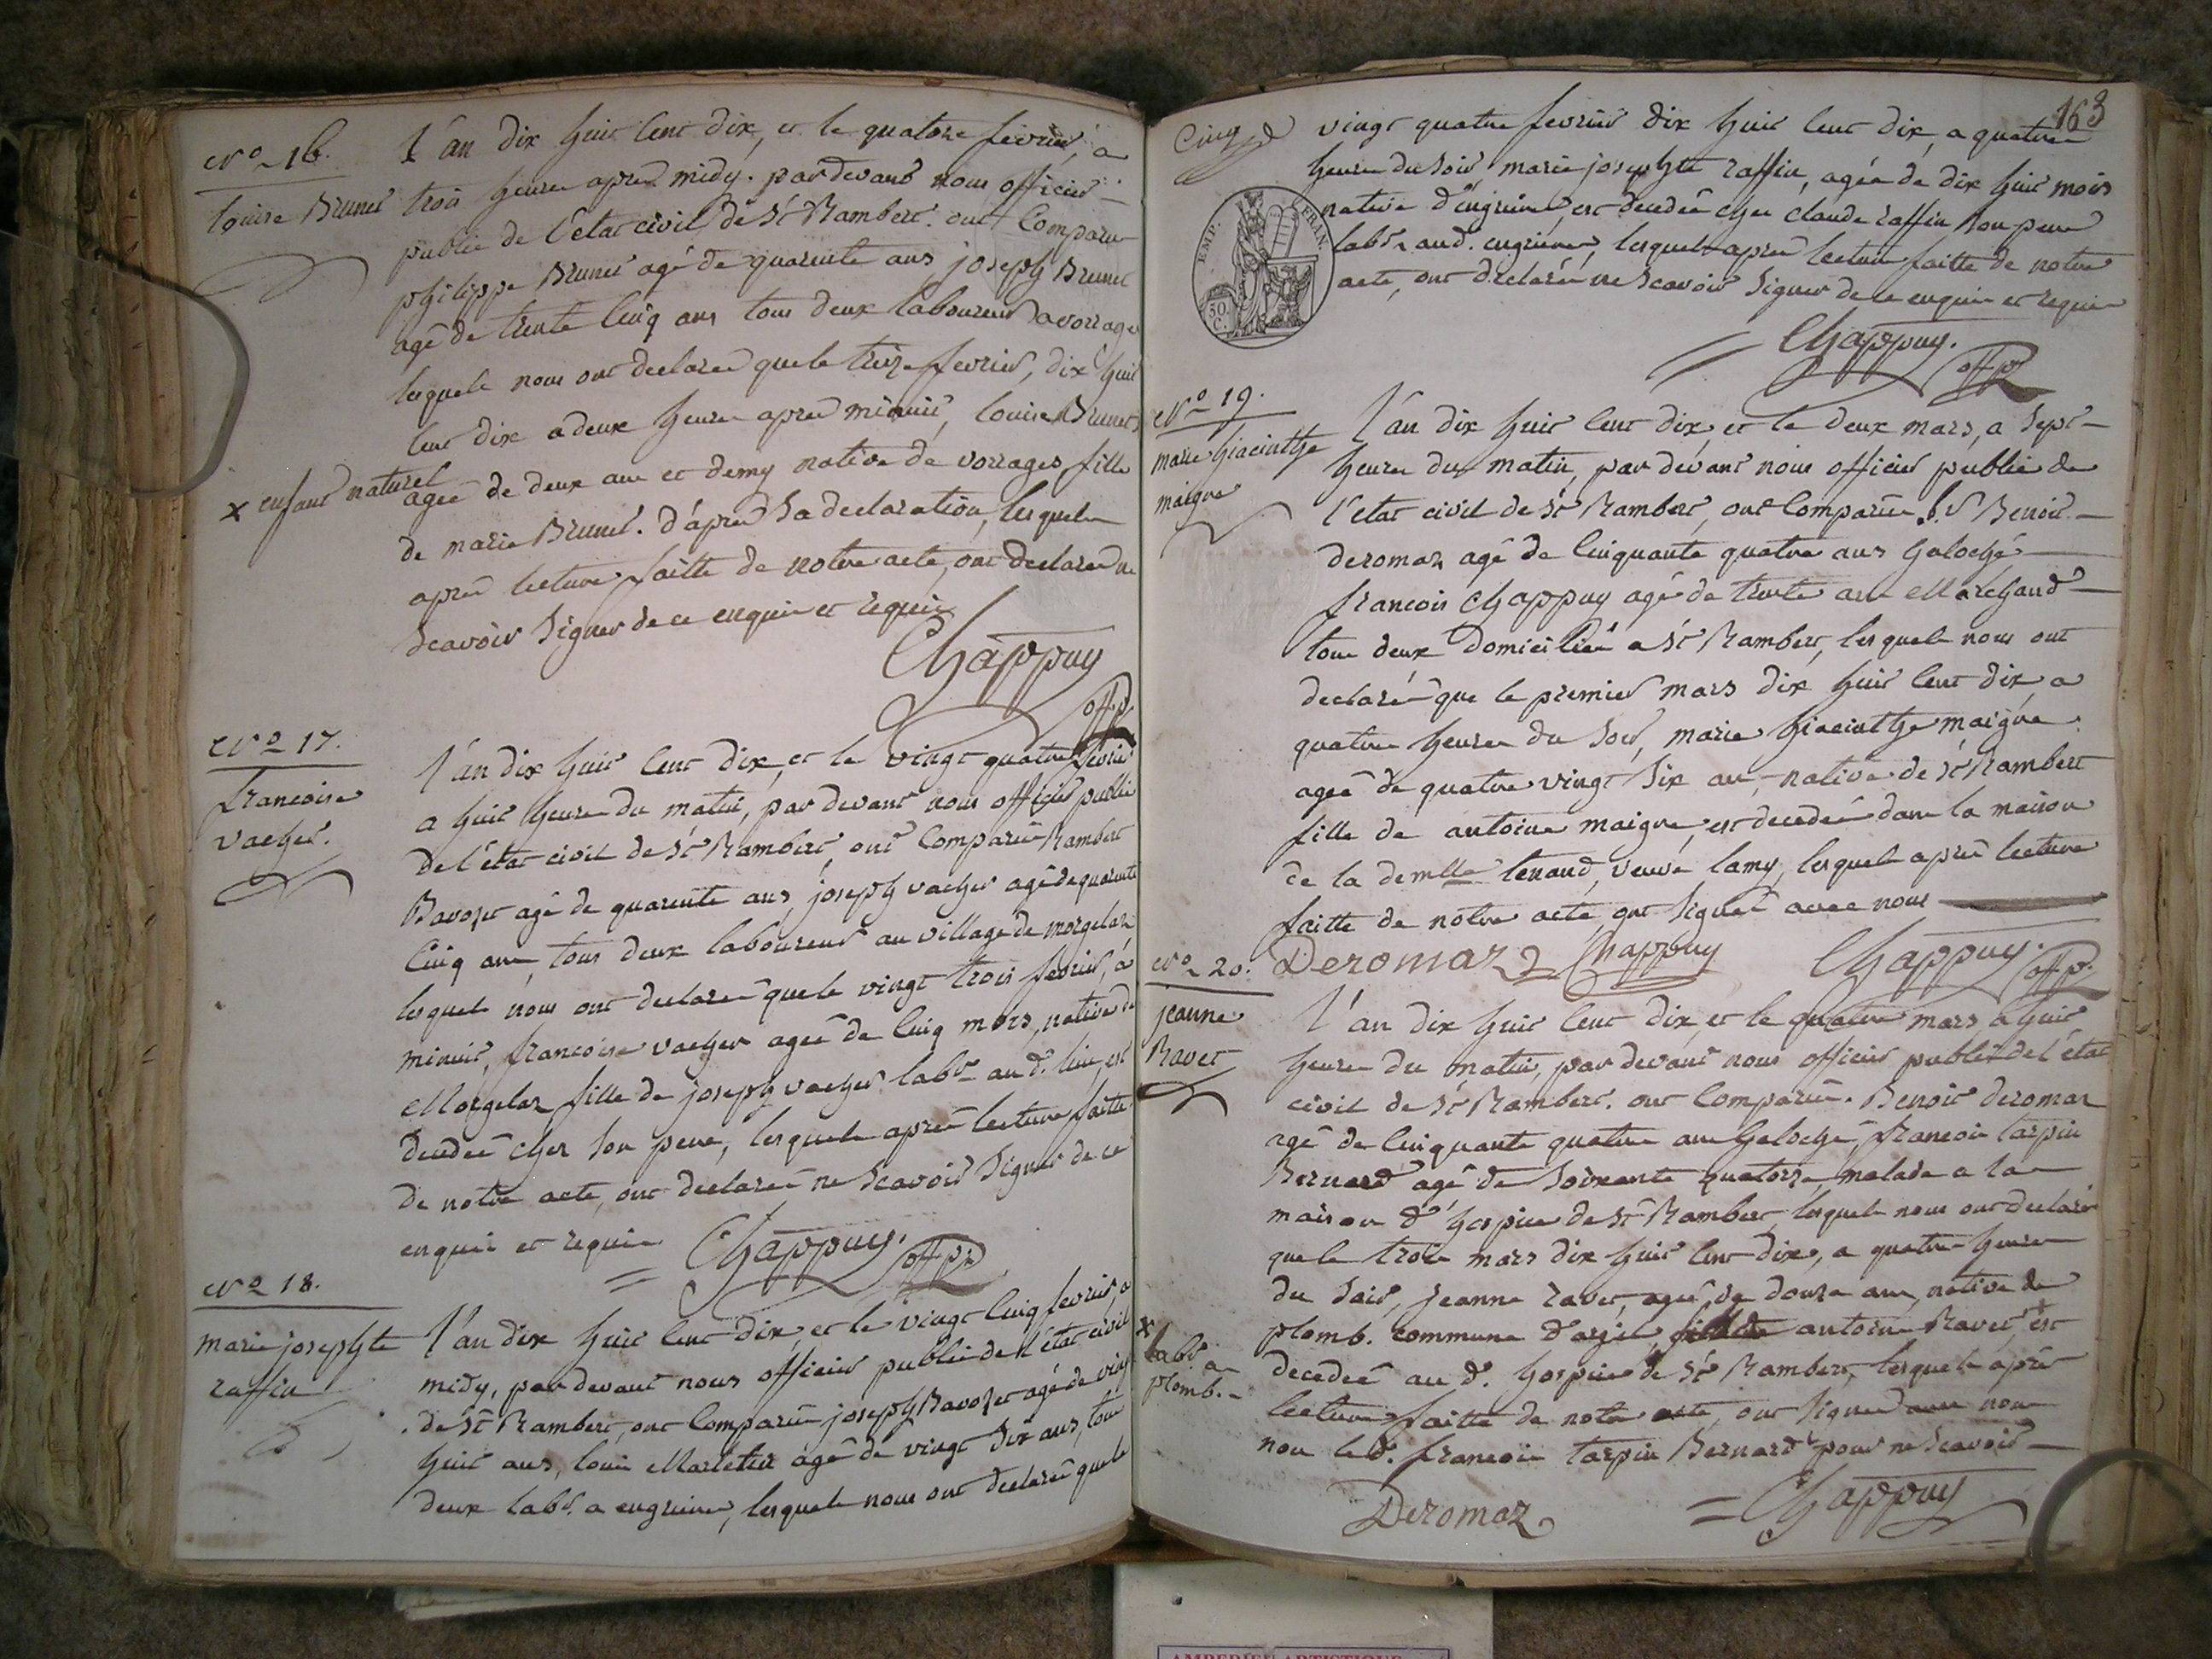 N.o 16.
Louise Brunet
L'an dix huit cent dix, et le quatorze fevrier, a
trois heures apres midy. par devant nous officier
public de l'etat civil de St Rambert. ont comparu
philippe Brunet agé de quarente ans, joseph Brunet
agé de trente cinq ans tous deux laboureurs a vorrages
lesquels nous ont declarés que le treize fevrier, dix huit
cent dix a deux heures apres minuit, louise Brunet
x enfant naturel
agée de deux ans et demy native de vorrages, fille
de marie Brunet. d'apres sa declaration, lesquels
apres lecture faitte de notre acte, ont declarés ne
scavoir signer de ce enquis et requis
Chappuy
off. p.
N.o 17.
francoise
vacher.
L'an dix huit cent dix, et le vingt quatre fevrier
a huit heures du matin, par devant nous officier public
de l'état civil de St Rambert, ont comparu Rambert
Bavozet agé de quarente ans, joseph vacher agé de quarente
cinq ans, tous deux laboureurs au village de morgelas
lesquels nous ont declarés que le vingt trois fevrier, à
minuit, francoise vacher agée de cinq mois, native de
Morgelas fille de joseph vacher labr au d. lieu, est
decedée chez son pere, lesquels après lecture faitte
de notre acte, ont declarés ne scavoir signer de ce
enquis et requis
Chappuy. off. p.
N.o 18.
marie josephte
raffin
L'an dix huit cent dix, et le vingt cinq fevrier, a
midy, par devant nous officier public de l'état civil
de St Rambert, ont comparu joseph Bavozet agé de vingt
huit ans, louis Marletin agé de vingt six ans, tous
deux labr. a engrieres, lesquels nous ont declarés que le
163
vingt quatre fevrier dix huit cent dix, a quatre
heures du soir, marie josephte raffin, agée de dix huit mois
native d'engrieres, est decedée chez claude raffin son pere
labr. aud. engrieres, lesquels apres lecture faitte de notre
acte, ont declarés ne scavoir signer de ce enquis et requis
EMP. FRAN.
50. C.
Chappuy.
off. p.
N.o 19.
marie hiacinthe
maigre
L'an dix huit cent dix, et le deux mars, a sept
heures du matin, par devant nous officier public de
l'état civil de St Rambert, ont comparu Benoit
deromaz agé de cinquante quatre ans galoché
francois chappuy agé de trente ans Marchand
tous deux Domiciliés a St Rambert, lesquels nous ont
declarés que le premier mars dix huit cent dix, a
quatre heures du soir, marie hiacinthe maigre
agée de quatre vingt six ans, native de St Rambert
fille de antoine maigre, est decedée dans la maison
de la demlle tenand, veuve lamy, lesquels apres lecture
faitte de notre acte ont signés avec nous
Deromaz Chappuy Chappuy. off. p.
N.o 20.
jeanne
Ravet
L'an dix huit cent dix, et le quatre mars, a huit
heures du matin, par devant nous officier public de l'état
civil de St Rambert. ont comparu. Benoit deromaz
agé de cinquante quatre ans galoché, francois tarpin
Bernard agé de soixante quatorze, malade a la
maison d'hospice de St Rambert, lesquels nous ont declarés
que le trois mars dix huit cent dix, a quatre heures
du soir, jeanne ravet, agée de douze ans, native de
plomb. commune d'argis, fille de antoine Ravet x est
x labr. a
plomb.
decedée au d. hospice de St Rambert, lesquels après
lecture faitte de notre acte, ont signés avec nous
non le d. francois tarpin Bernard pour ne scavoir
Deromaz Chappuy